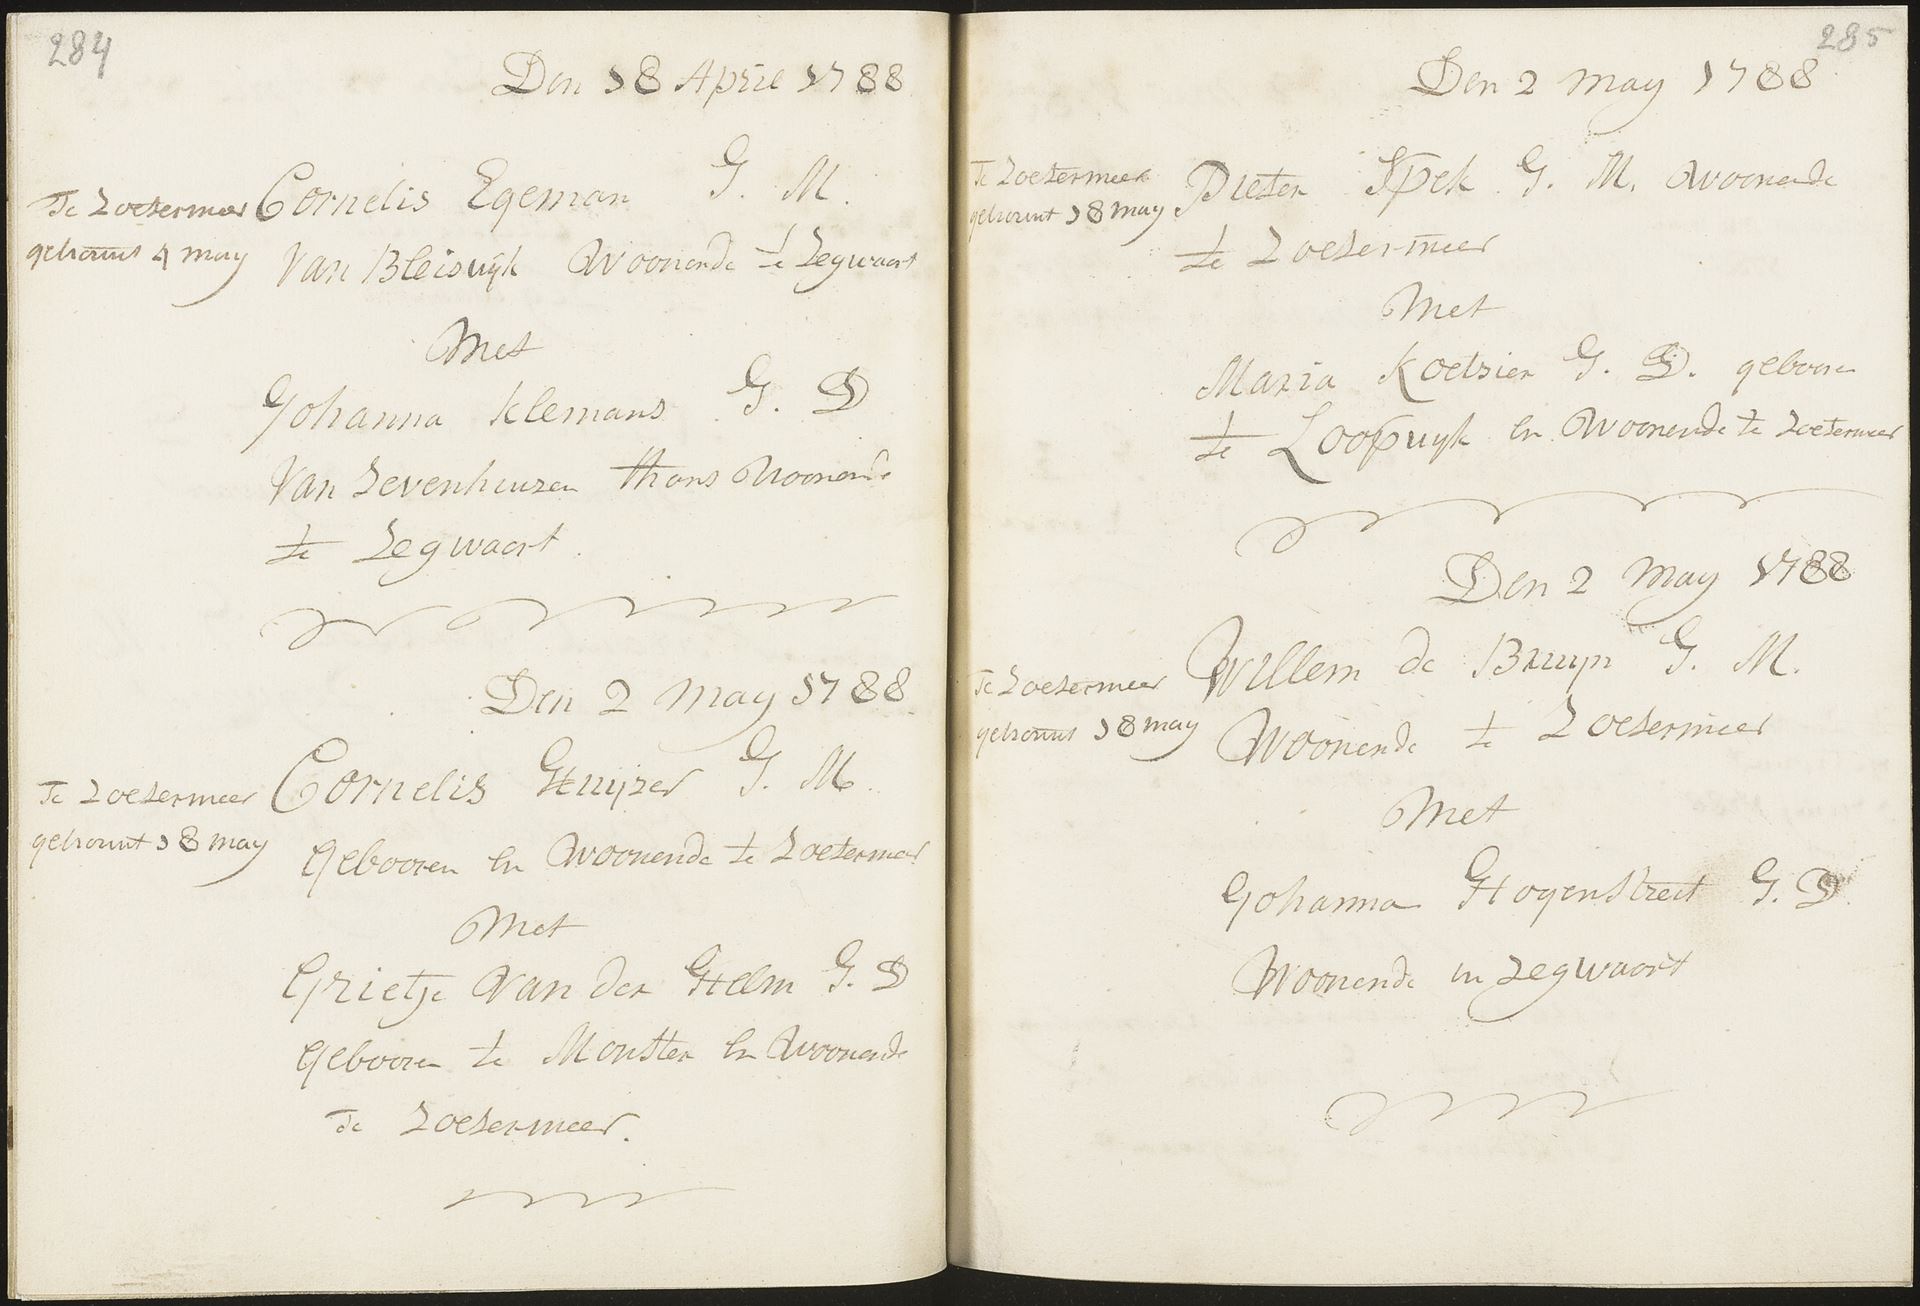 284
Den 18 April 1788
Te Zoetermeer
getrouwt 4 may
Cornelis Egeman J. M.
Van Bleiswijk Woonende te Zegwaart
Met
Johanna Klemans J. D
Van Zevenhuizen thans Woonende
te Zegwaart
Den 2 May 1788
Te Zoetermeer
getrouwt 18 may
Cornelis Huijzer J. M.
Gebooren En Woonende te Zoetermeer
Met
Grietje Van der Helm J. D
Gebooren te Monster En Woonende
Te Zoetermeer.
285
Den 2 May 1788
Te Zoetermeer
getrouwt 18 may
Pieter Spek J. M. Woonende
te Zoetermeer
Met
Maria Koetsier J. D. gebooren
te Loopwyk En Woonende te Zoetermeer
Den 2 May 1788
Te Zoetermeer
getrouwt 18 may
Willem de Bruyn J. M.
Woonende te Zoetermeer
Met
Johanna Hogenstreet J. D.
Woonende in Zegwaart